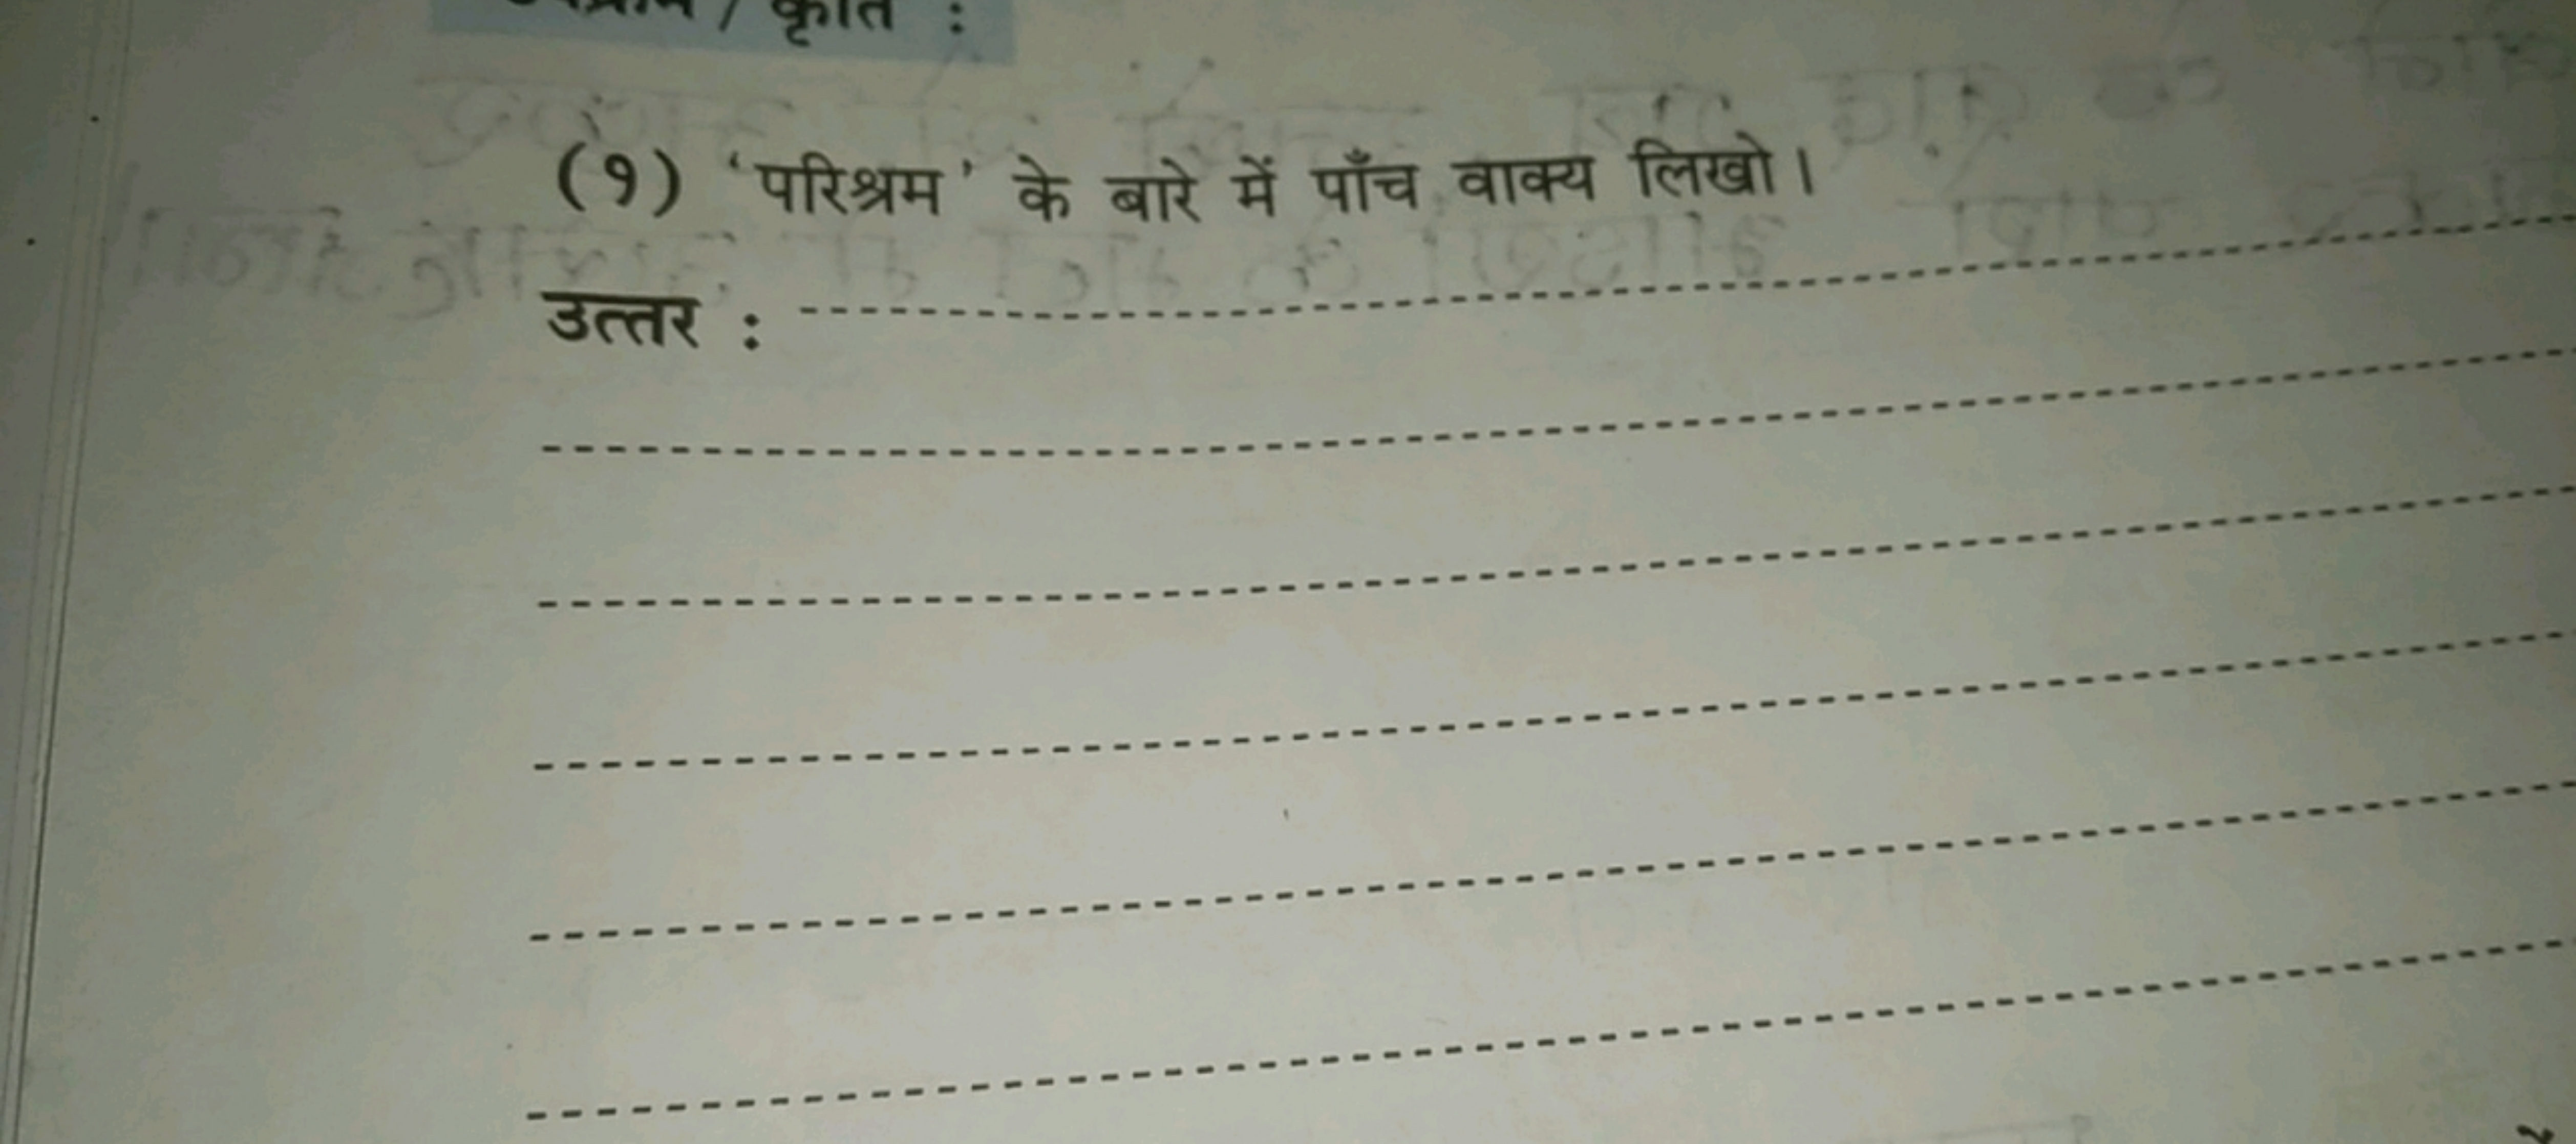 / कृति :
(१) 'परिश्रम' के बारे में पाँच वाक्य लिखो।
उत्तर :